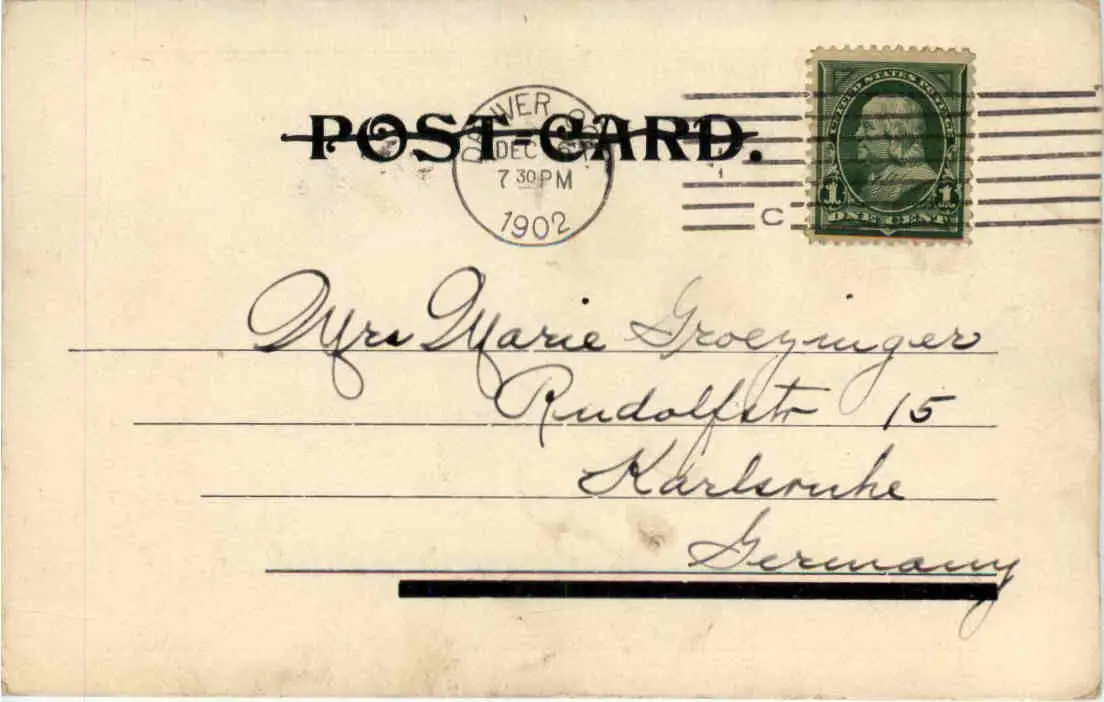 POST-CARD.
DENVER, COLO.
DEC
7 30 PM
1902
C
UNITED STATES POSTAGE
1 1
ONE CENT
Mrs Marie Groezinger
Rudolfstr 15
Karlsruhe
Germany